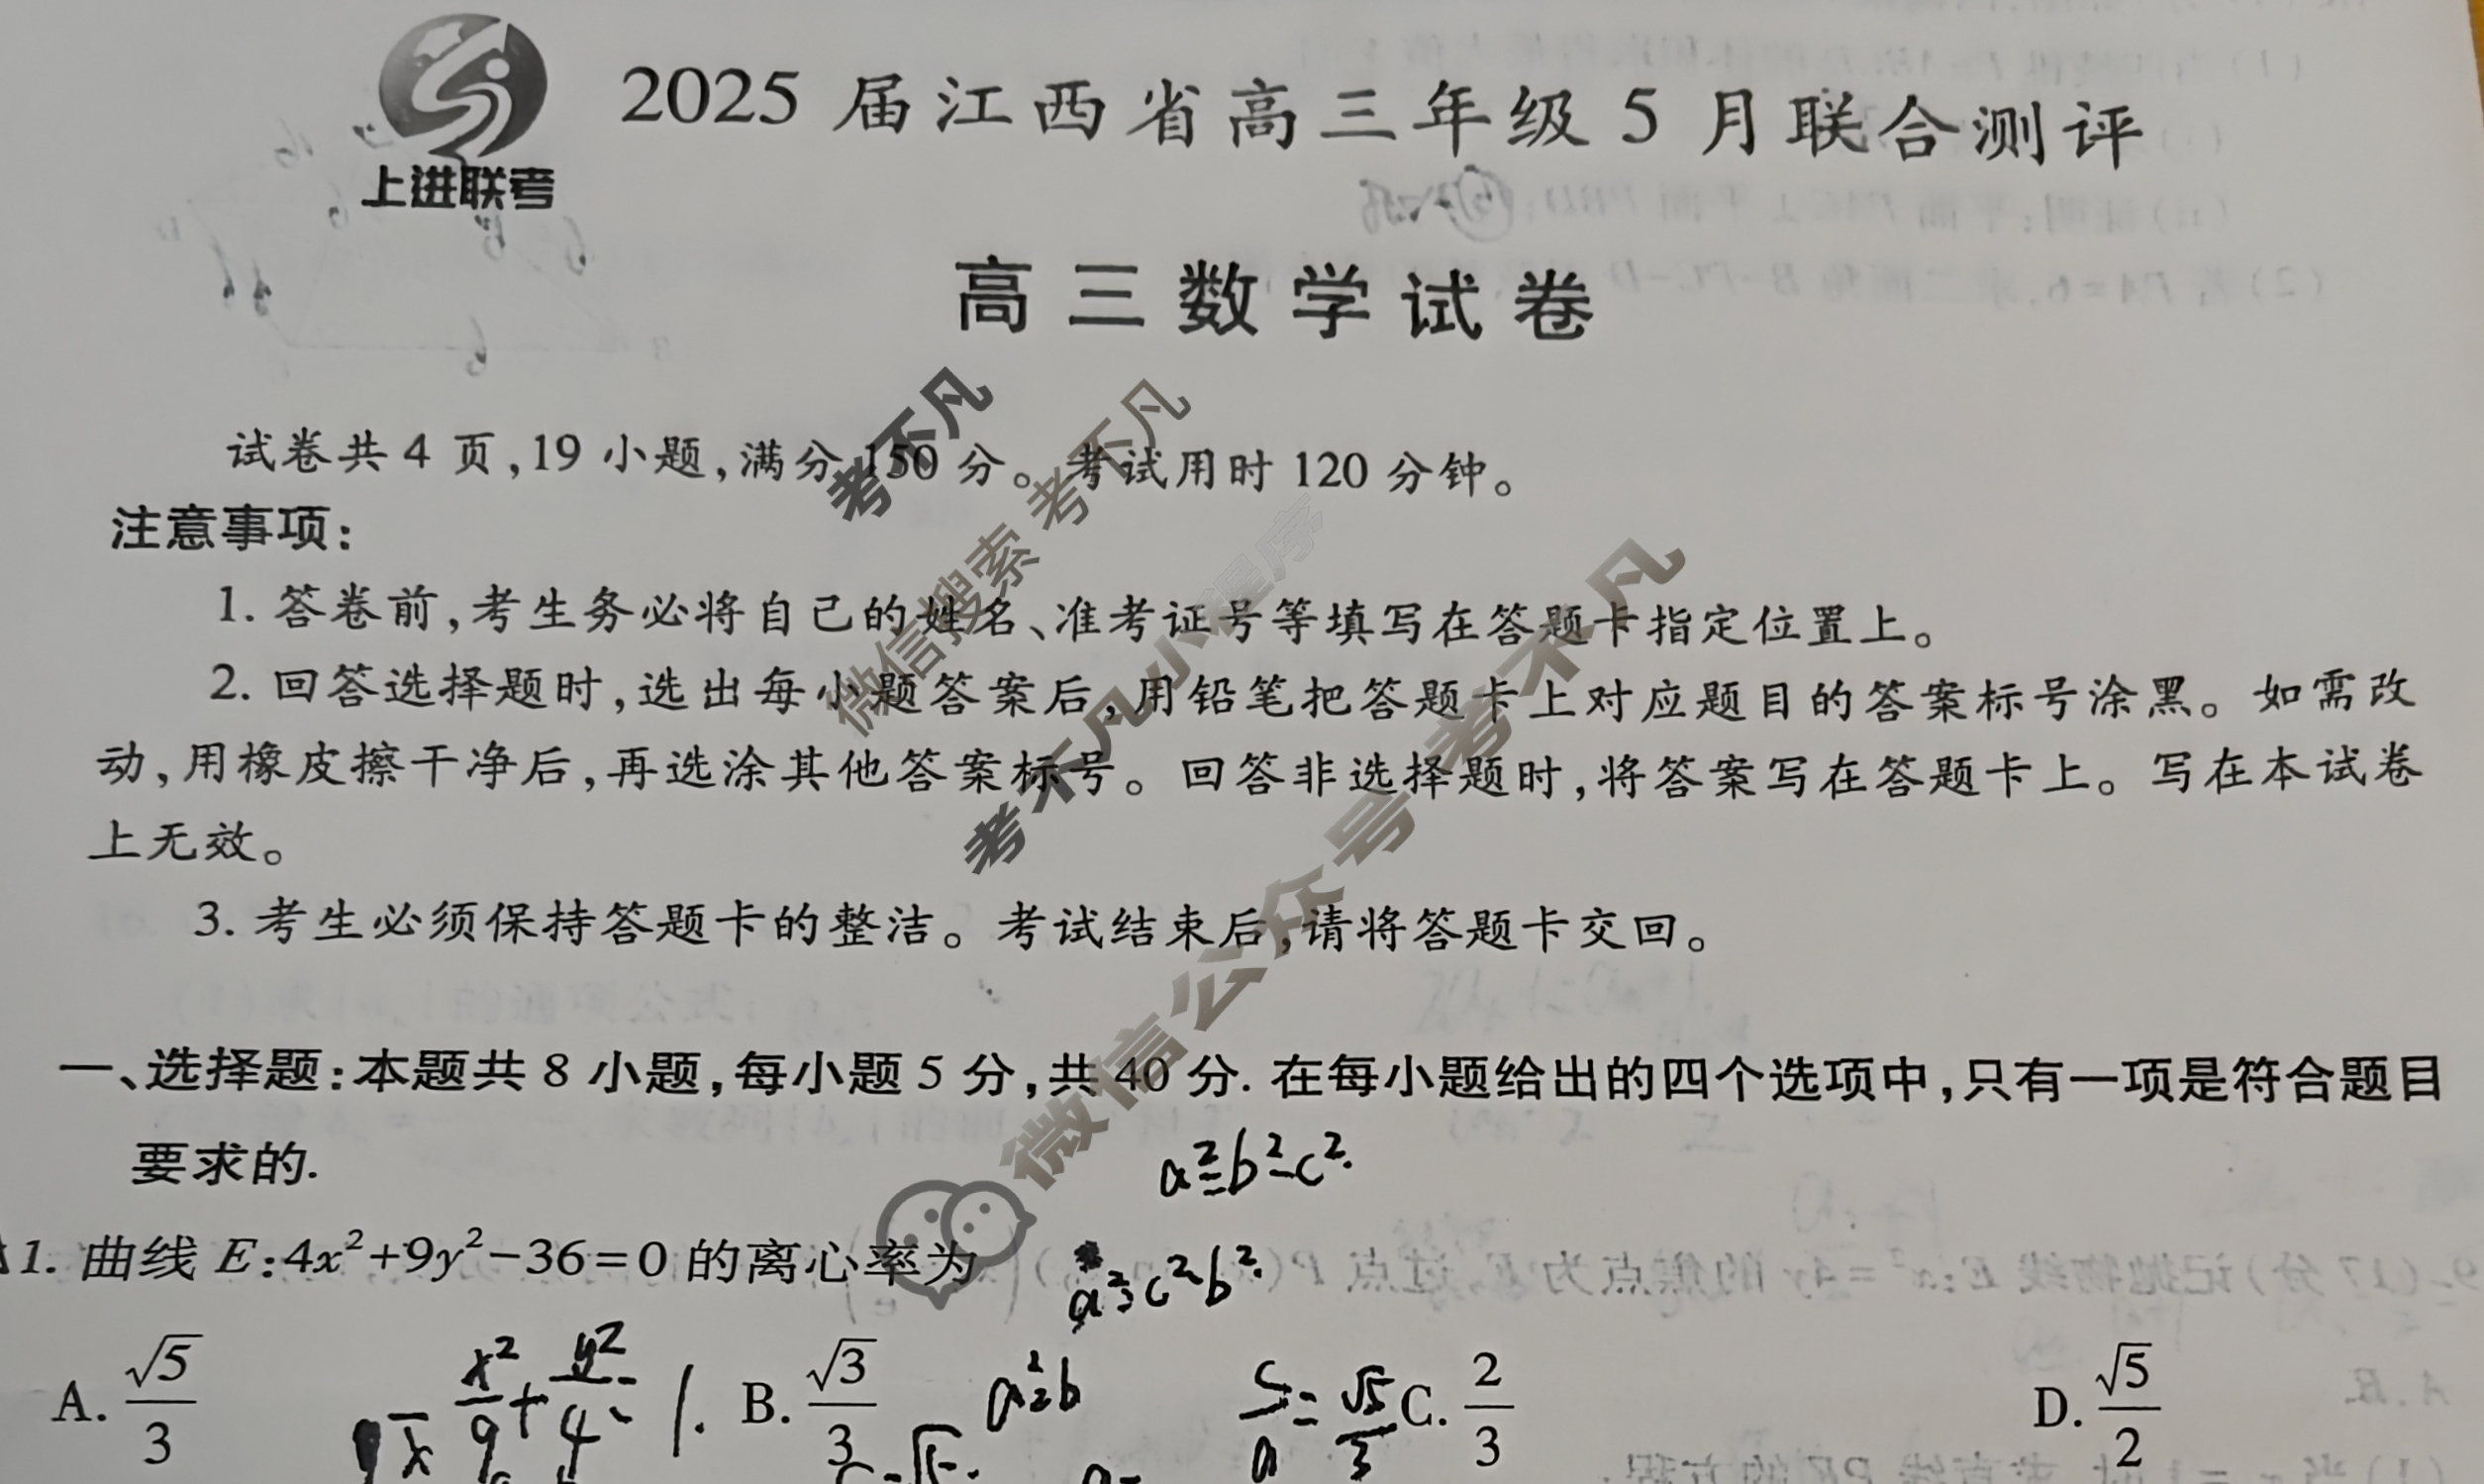 2025 届江西省高三年级 5 月联合测评
上进联考
高三数学试卷
考不凡
微信搜索 考不凡
考不凡小程序
微信公众号 考不凡
试卷共 4 页,19 小题,满分 150 分。考试用时 120 分钟。
注意事项:
1. 答卷前,考生务必将自己的姓名、准考证号等填写在答题卡指定位置上。
2. 回答选择题时,选出每小题答案后,用铅笔把答题卡上对应题目的答案标号涂黑。如需改
动,用橡皮擦干净后,再选涂其他答案标号。回答非选择题时,将答案写在答题卡上。写在本试卷
上无效。
3. 考生必须保持答题卡的整洁。考试结束后,请将答题卡交回。
一、选择题:本题共 8 小题,每小题 5 分,共 40 分. 在每小题给出的四个选项中,只有一项是符合题目
要求的.
a²=b²-c².
1. 曲线 E:4x²+9y²-36=0 的离心率为
a²=c²-b².
A. √5/3 B. √3/3 C. 2/3 D. √5/2
x²/9+y²/4=1.
c/a=√5/3